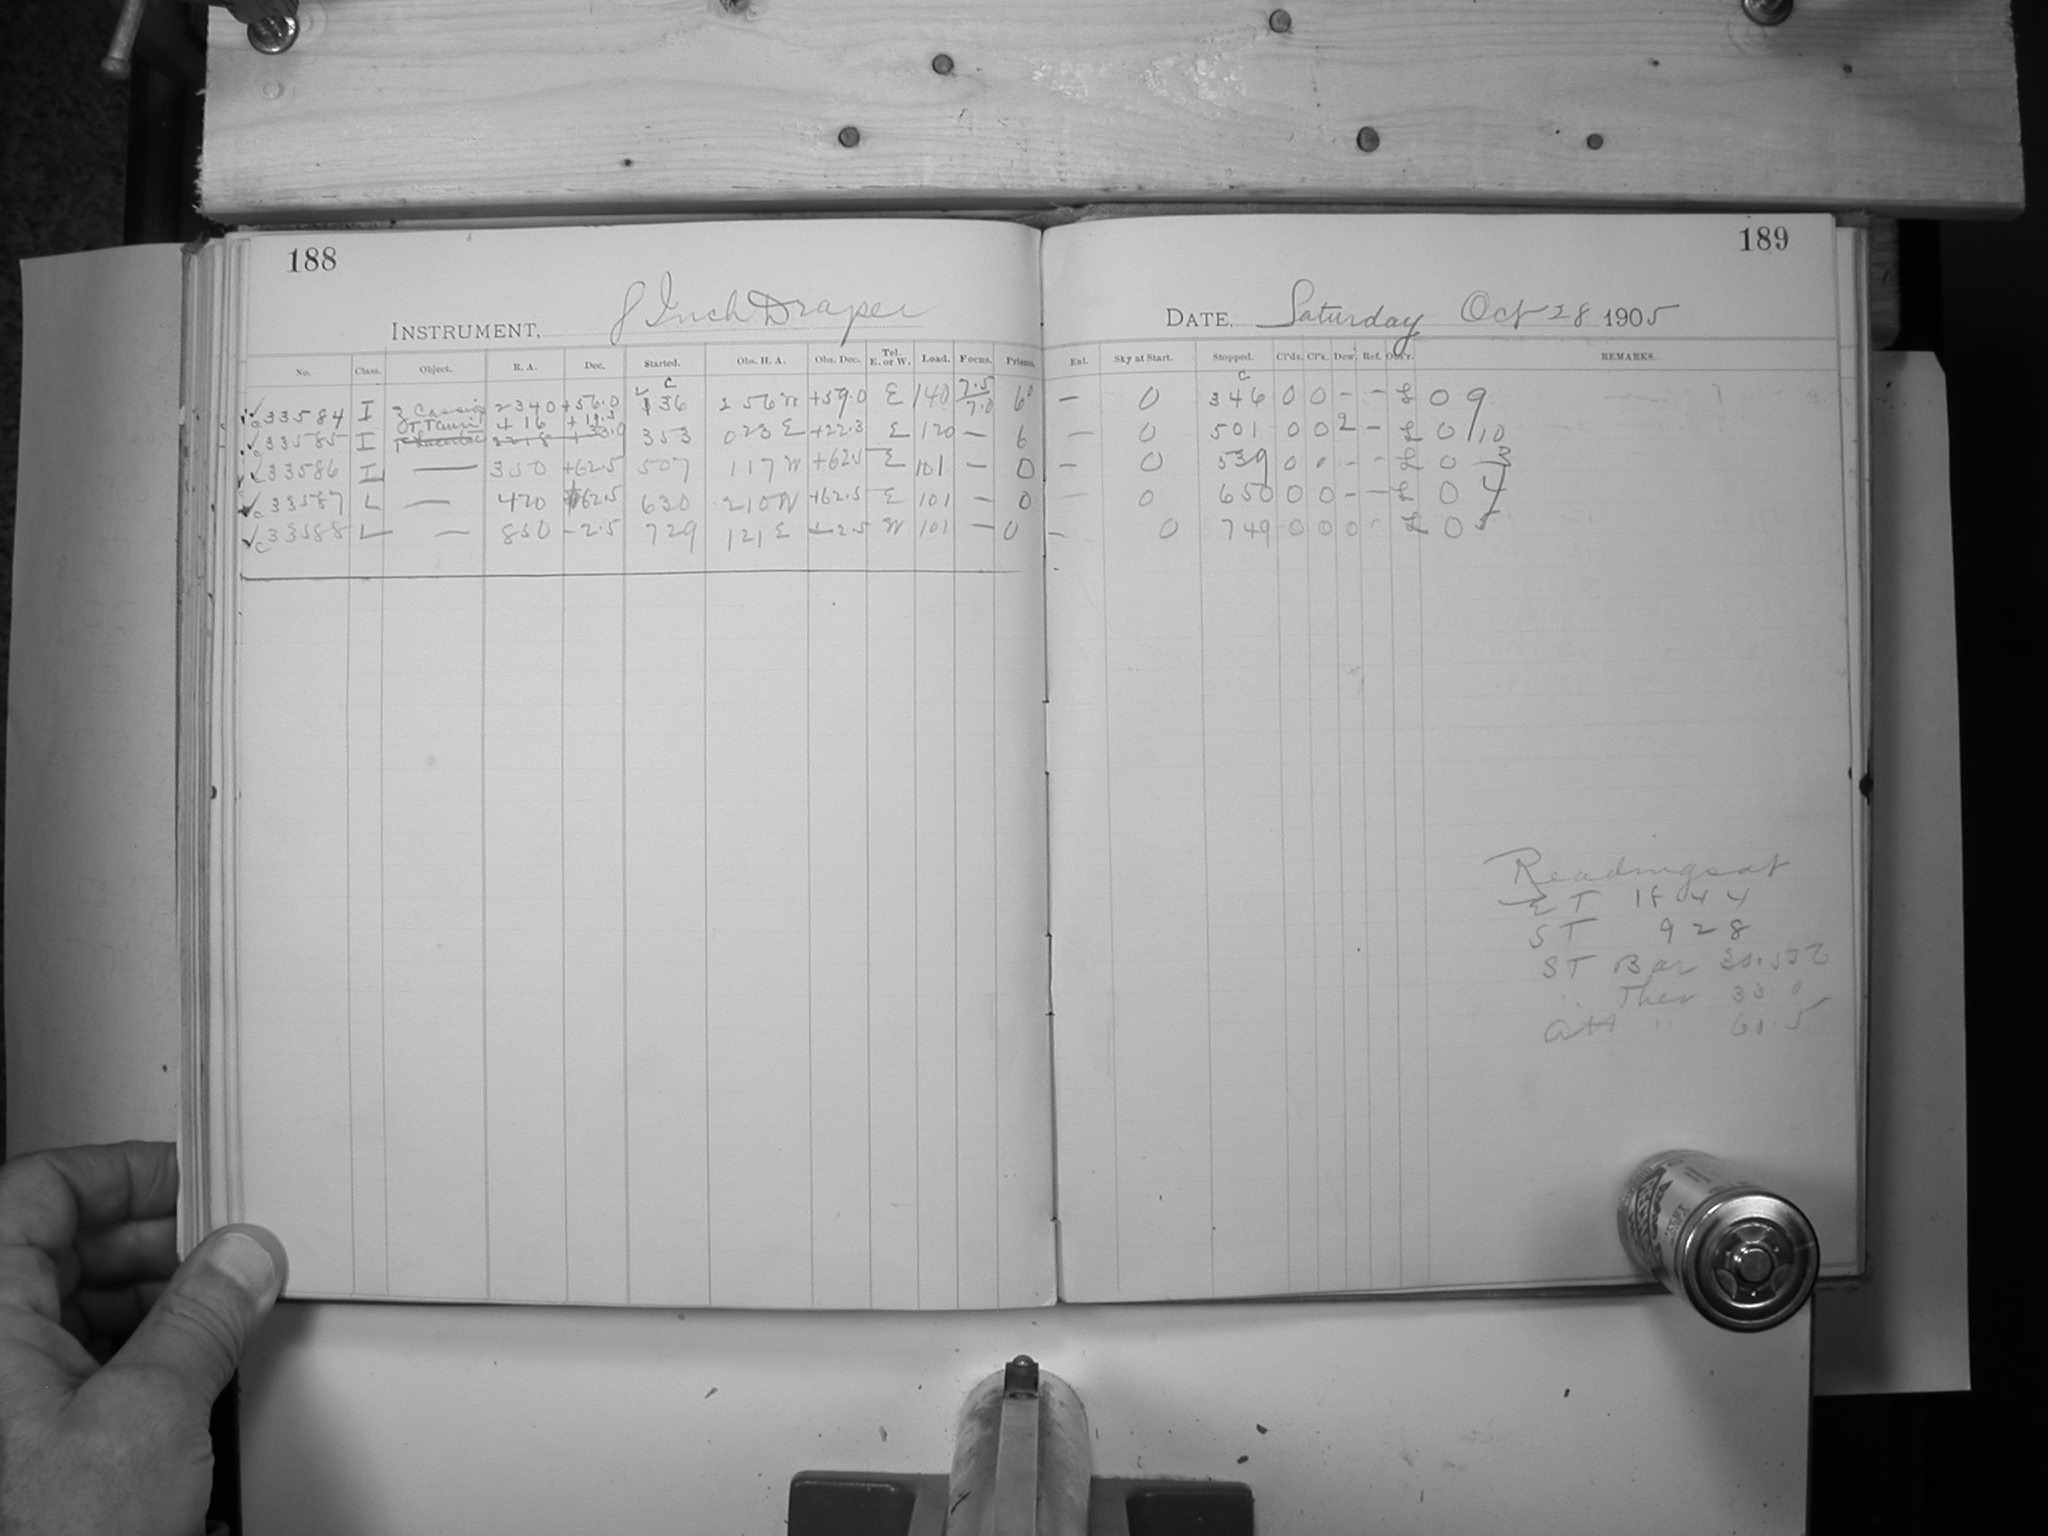 188
INSTRUMENT, 8 Inch Draper
No. Class. Object. R. A. Dec. Started. Obs. H. A. Obs. Dec. Tel. E. or W. Load. Focus. Prisms.
33584 I Z Cassiop 2340 +56.0 136 256 W +59.0 E 140 7.5 7.0 6
33585 I T Tauri 416 +19.3 353 023 E +22.3 E 120 — 6
33586 I — 350 +62.5 507 117 W +62.5 E 101 — 0
33587 L — 420 +62.5 630 210 W +62.5 E 101 — 0
33588 L — 850 -2.5 729 121 E -2.5 W 101 — 0
189
DATE, Saturday Oct 28 1905
Enl. Sky at Start. Stopped. Cl'ds. Cl'k. Dew. Ref. Obs'r. REMARKS.
— 0 346 0 0 - - L 0 9
— 0 501 0 0 2 - L 0 10
— 0 539 0 - - L 0 3
— 0 650 0 0 - - L 0 4
— 0 749 0 0 0 - L 0 5
Readings at
ET 18 44
ST 9 28
ST Bar
Ther 33.0
Att " 60.5